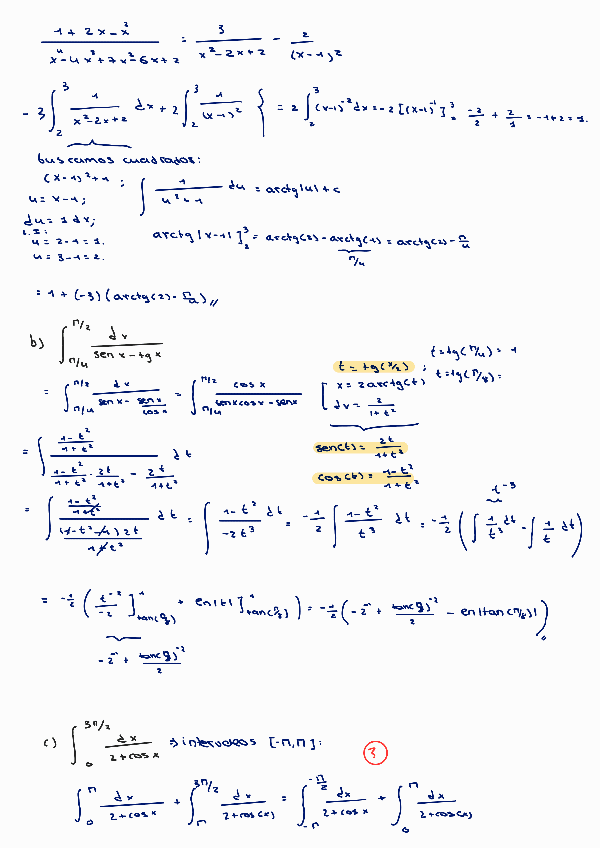 (1 + 2x - x²) / (x⁴ - 4x³ + 7x² - 6x + 2) = 3 / (x² - 2x + 2) - 2 / (x-1)²
-3 ∫₂³ 1/(x² - 2x + 2) dx + 2 ∫₂³ 1/(x-1)² { = 2 ∫₂³ (x-1)⁻² dx = -2 [(x-1)⁻¹]₂³ = -2/2 + 2/1 = -1+2 = 1.
buscamos cuadrados:
(x-1)² + 1 ; ∫ 1/(u² + 1) du = arctg|u| + c
u = x-1;
du = 1 dx;
L.I:
u = 2-1 = 1.
u = 3-1 = 2.
arctg|x-1|]₂³ = arctg(2) - arctg(1) = arctg(2) - π/4
π/4
= 1 + (-3)(arctg(2) - π/4)//
b) ∫_{π/4}^{π/2} dx / (sen x - tg x)
t = tg(x/2) ; t = tg(π/4) = 1
x = 2 arctg(t) t = tg(π/8) =
dx = 2/(1+t²)
= ∫_{π/4}^{π/2} dx / (sen x - sen x/cos x) = ∫_{π/4}^{π/2} cos x / (sen x cos x - sen x)
sen(t) = 2t/(1+t²)
cos(t) = (1-t²)/(1+t²)
= ∫ ((1-t²)/(1+t²)) / ((1-t²)/(1+t²) · 2t/(1+t²) - 2t/(1+t²)) dt
= ∫ ((1-t²)/(1+t²)) / ((1-t²-1)2t/(1+t²)) dt = ∫ (1-t²)/(-2t³) dt = -1/2 ∫ (1-t²)/t³ dt = -1/2 (∫ 1/t³ dt - ∫ 1/t dt)
t⁻³
= -1/2 (t⁻²/-2 ]¹_{tan(π/8)} + ln|t| ]¹_{tan(π/8)}) = -1/2 (-2⁻¹ + tan(π/8)⁻²/2 - ln|tan(π/8)|)
-2⁻¹ + tan(π/8)⁻²/2
c) ∫₀^{3π/2} dx / (2+cos x) → intervalos [-π, π]:
3
∫₀^π dx/(2+cos x) + ∫_π^{3π/2} dx/(2+cos(x)) = ∫_{-π}^{-π/2} dx/(2+cos x) + ∫₀^π dx/(2+cos(x))